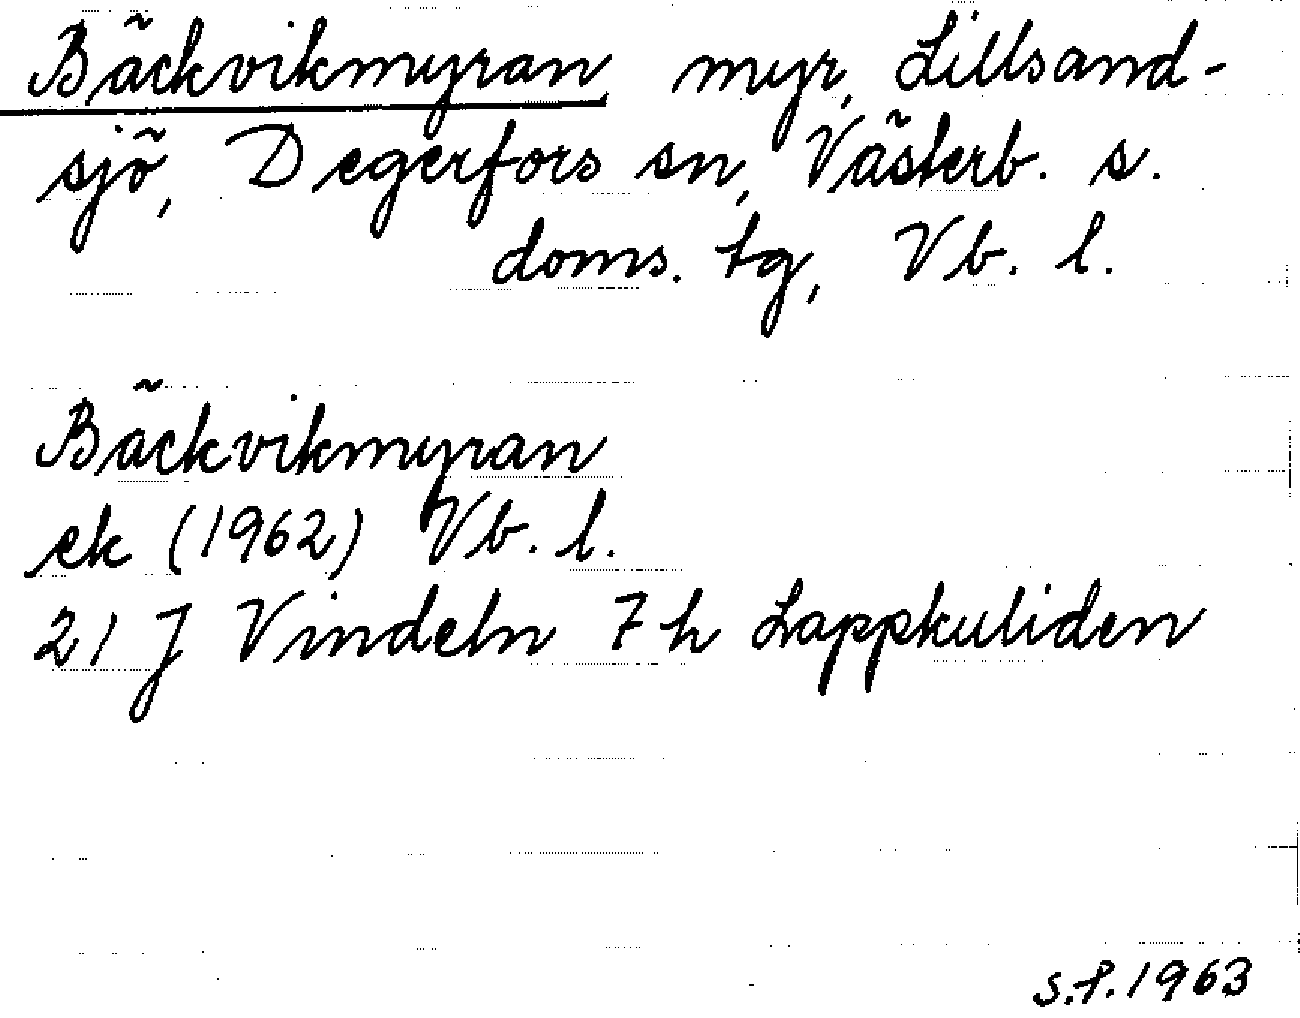 Bäckvikmyran, myr, Lillsand-
sjö, Degerfors sn, Västerb. s.
doms. tg, Vb. l.
Bäckvikmyran
ek (1962) Vb. l.
21 J Vindeln 7 h Lappkuliden
s.f. 1963